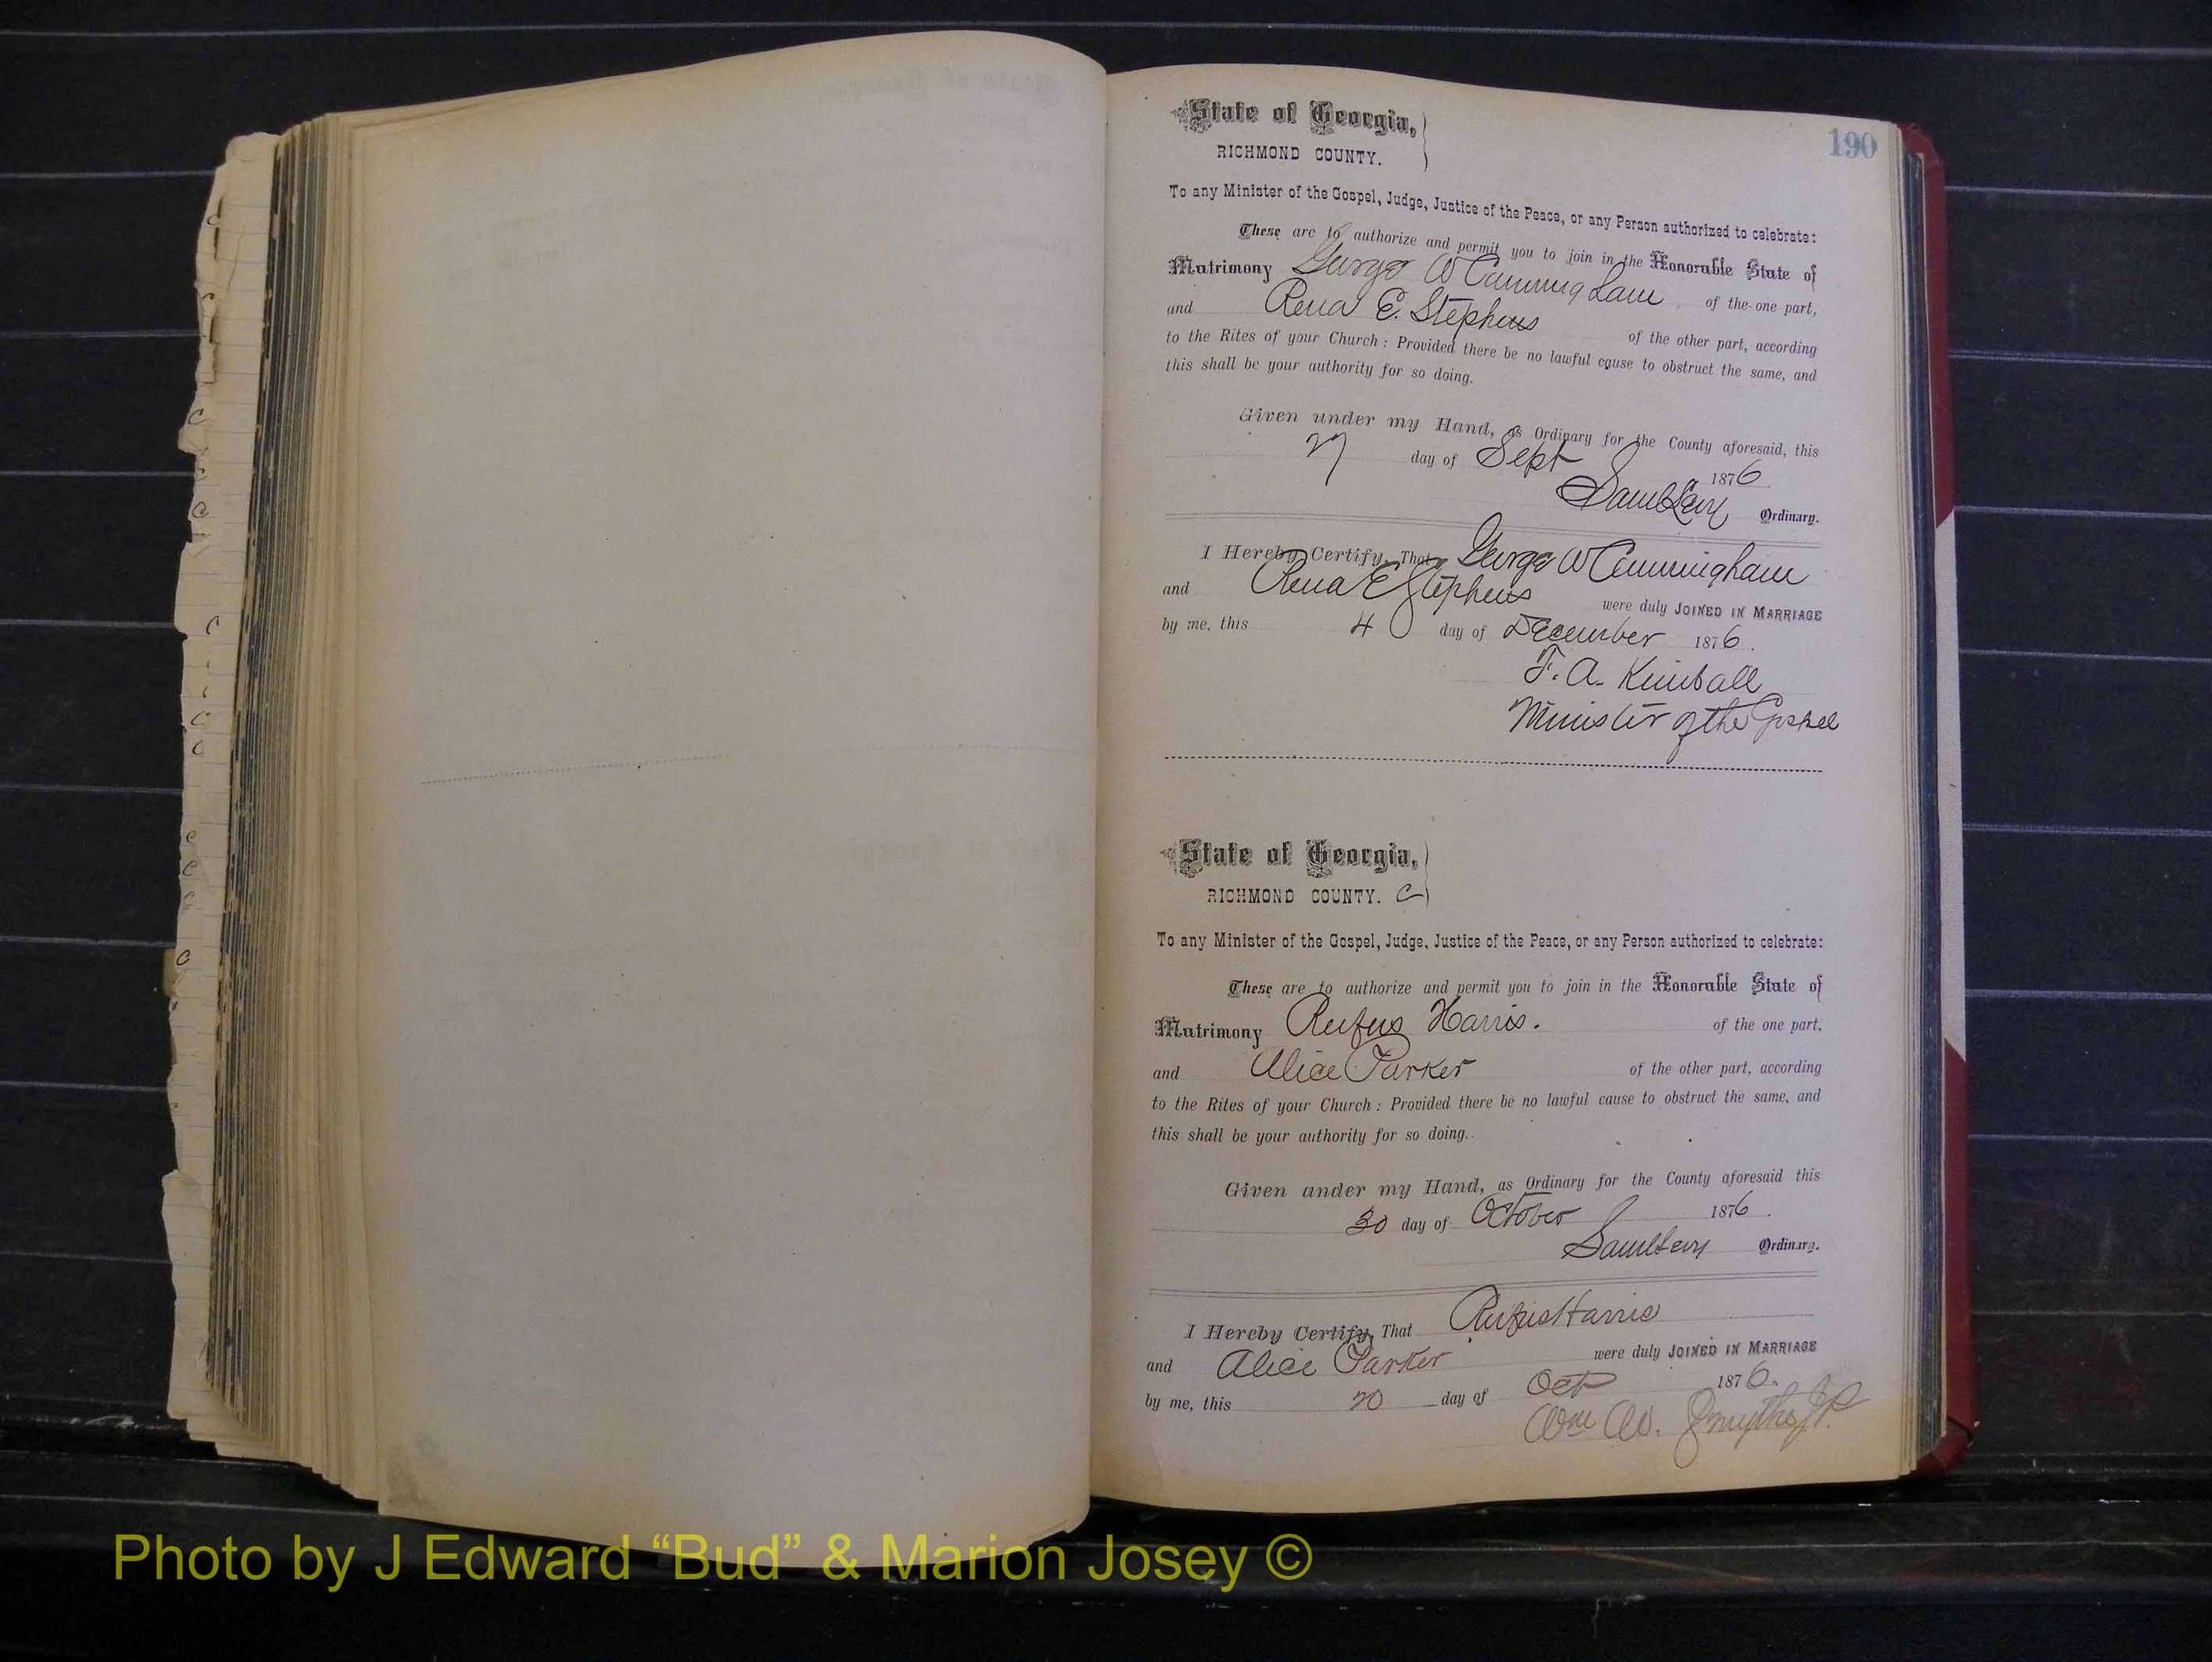 190
State of Georgia,
RICHMOND COUNTY.
To any Minister of the Gospel, Judge, Justice of the Peace, or any Person authorized to celebrate:
These are to authorize and permit you to join in the Honorable State of
Matrimony George W Cunningham of the one part,
and Rena E. Stephens of the other part, according
to the Rites of your Church: Provided there be no lawful cause to obstruct the same, and
this shall be your authority for so doing.
Given under my Hand, as Ordinary for the County aforesaid, this
27 day of Sept 1876
Saml Levy Ordinary.
I Hereby Certify, That George W Cunningham
and Rena E Stephens were duly JOINED IN MARRIAGE
by me, this 4 day of December 1876.
F. A. Kimball
Minister of the Gospel
State of Georgia,
RICHMOND COUNTY. C
To any Minister of the Gospel, Judge, Justice of the Peace, or any Person authorized to celebrate:
These are to authorize and permit you to join in the Honorable State of
Matrimony Rufus Harris. of the one part,
and Alice Parker of the other part, according
to the Rites of your Church: Provided there be no lawful cause to obstruct the same, and
this shall be your authority for so doing.
Given under my Hand, as Ordinary for the County aforesaid this
30 day of October 1876.
Saml Levy Ordinary.
I Hereby Certify, That Rufus Harris
and Alice Parker were duly JOINED IN MARRIAGE
by me, this 20 day of Oct 1876.
Wm W. Smythe J.P.
Photo by J Edward “Bud” & Marion Josey ©